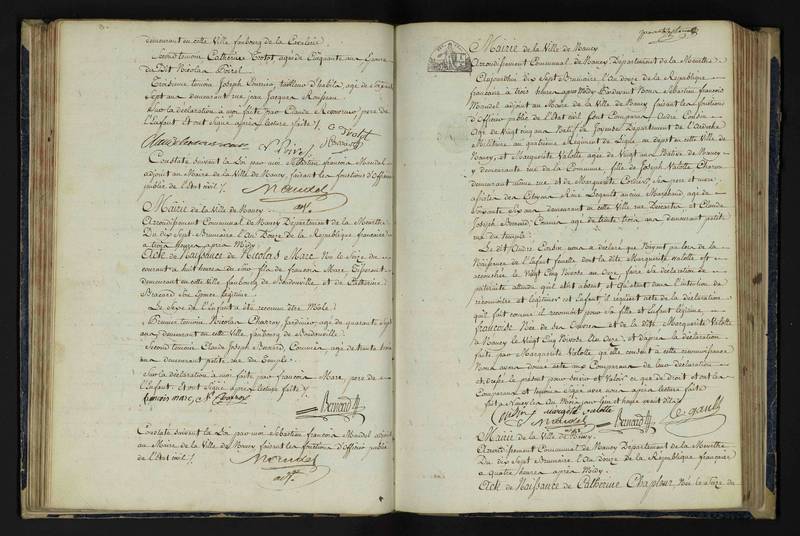 demeurant en cette Ville faubourg de la
Second temoin Catherine Trotot agée de Cinquante ans femme
du Dit Nicolas Poirel
Troisieme temoin Joseph tailleur d'habits, agé de
Sept ans demeurant rue Jean Jacques Rousseau
Sur la déclaration à moi faite par Claude pere de
l'Enfant et ont signé après lecture faite /.
Constaté suivant la Loi par moi Sébastien françois Mandel
adjoint au Maire de la Ville de Nancy, faisant les fonctions d'Officier
public de l'État civil /.
Mandel
adjt.
Mairie de la Ville de Nancy
Arrondissement Communal de Nancy Département de la Meurthe
Du dix Sept Brumaire l'an Douze de la République française
à trois heures après Midy
Acte de Naissance de Nicolas Marc Né le Seize du
courant à huit heures du soir fils de françois Marc
demeurant en cette Ville faubourg de Boudonville et de Catherine
son Epouse légitime
Le Sexe de l'Enfant a été reconnu être Mâle
Premier temoin Nicolas Charroy Jardinier, agé de quarante Sept
ans demeurant en cette Ville faubourg de Boudonville
Second temoin Claude Joseph Bernard, Commis, agé de trente trois
ans demeurant petite rue du Temple
Sur la déclaration à moi faite par françois Marc, pere de
l'Enfant Et ont Signé après lecture faite /.
françois marc, N. Charroy
Bernard
Constaté suivant la Loi par moi Sébastien françois Mandel adjoint
au Maire de la Ville de Nancy faisant les fonctions d'Officier public
de l'État civil /.
Mandel
adjt.
Mairie de la Ville de Nancy
Arrondissement Communal de Nancy Département de la Meurthe
Aujourdhui dix Sept Brumaire l'an douze de la République
française à trois heures après Midy Pardevant Nous Sébastien françois
Mandel adjoint au Maire de la Ville de Nancy faisant les fonctions
d'Officier public de l'État civil sont Comparus André Cordin
Agé de Vingt cinq ans Natif de Département de l'Ardeche
Militaire au quatrieme Régiment de Ligne en depot en cette Ville de
Nancy, et Marguerite Valotte agée de Vingt ans Native de Nancy
y demeurante rue de la Commune, fille de Joseph Valotte
demeurant même rue et de Marguerite ses pere et mere
assistés des Citoyens Legault ancien Marchand agé de
soixante Six ans demeurant en cette Ville rue et Claude
Joseph Bernard, Commis agé de trente trois ans demeurant petite
rue du temple
Le dit André Cordin nous a déclaré que N'ayant pu lors de la
Naissance de l'Enfant femelle dont la dite Marguerite Valotte est
accouchée le Vingt Cinq Nivose an onze, faire sa déclaration de
paternité attendu qu'il etoit absent et étant dans l'intention de
reconnoitre et légitimer cet Enfant il requiert acte de la déclaration
qu'il fait comme il reconnoit pour Sa fille et Enfant légitime,
françoise Née de ses Oeuvres et de la dite Marguerite Valotte
à Nancy le Vingt Cinq Nivose an onze, et d'après la déclaration
faite par Marguerite Valotte qu'elle consent à cette reconnoissance
Nous avons donné acte aux Comparans de leur déclaration
et dressé le présent pour servir et Valoir ce que de droit et ont les
Comparans et temoins Signé avec nous après lecture faite
fait à Nancy les An Mois jour Lieu et heure avant dits /.
Cordin Margté Valotte
Mandel adjt. Bernard Legault
Mairie de la Ville de Nancy.
Arrondissement Communal de Nancy Département de la Meurthe
Du dix Sept Brumaire l'An douze de la République française
à quatre heures après Midy.
Acte de Naissance de Catherine Née le Seize du